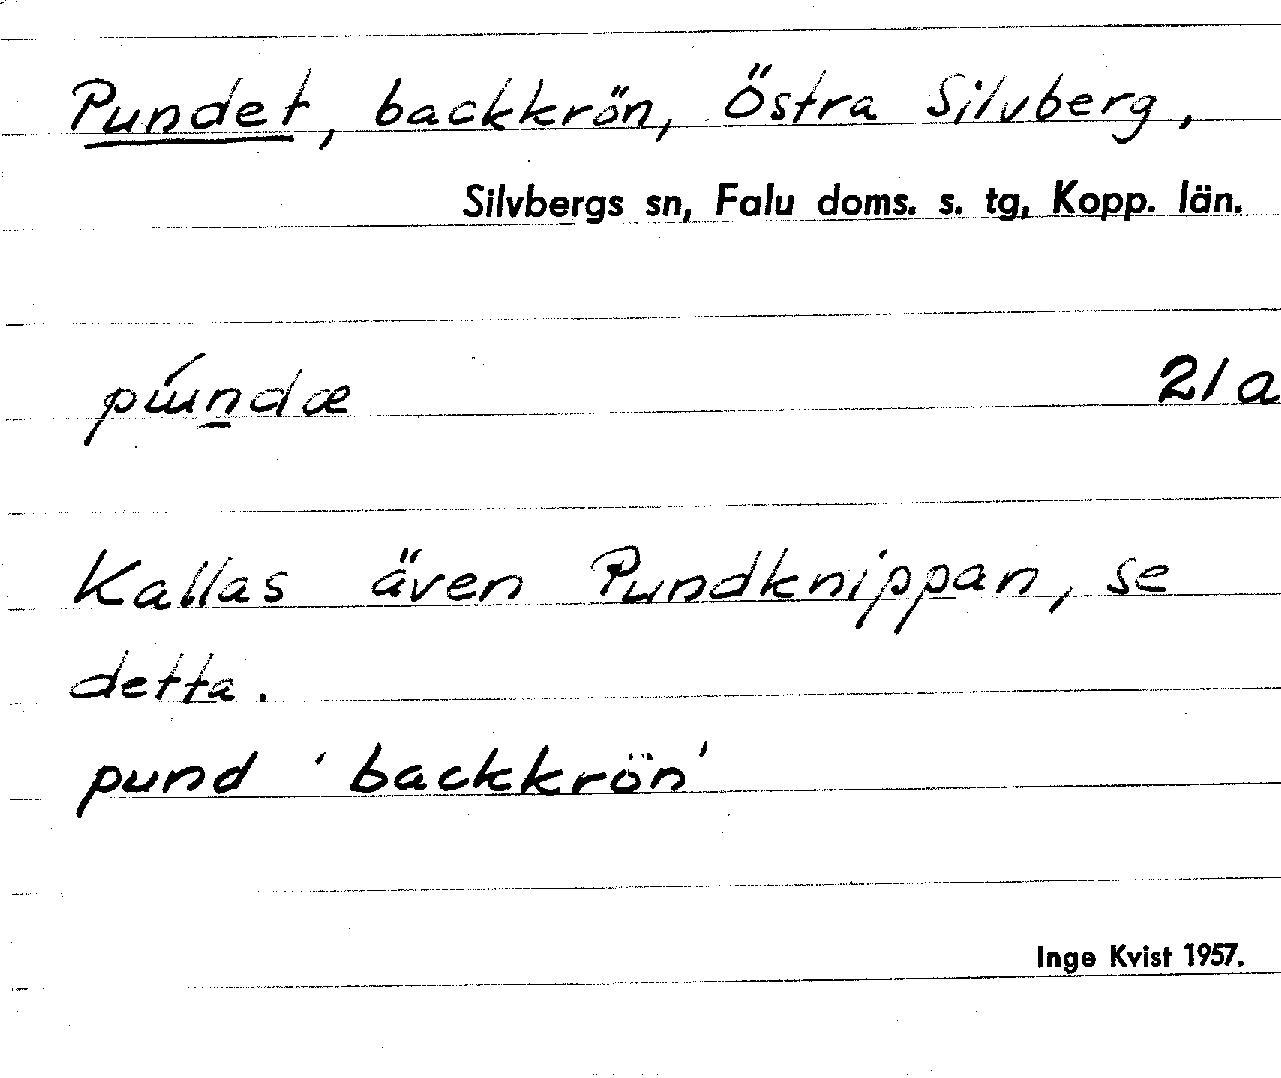 Pundet, backkrön, Östra Silvberg,
Silvbergs sn, Falu doms. s. tg, Kopp. län.
21a
Kallas även Pundknippan, se
detta.
pund 'backkrön'
Inge Kvist 1957.